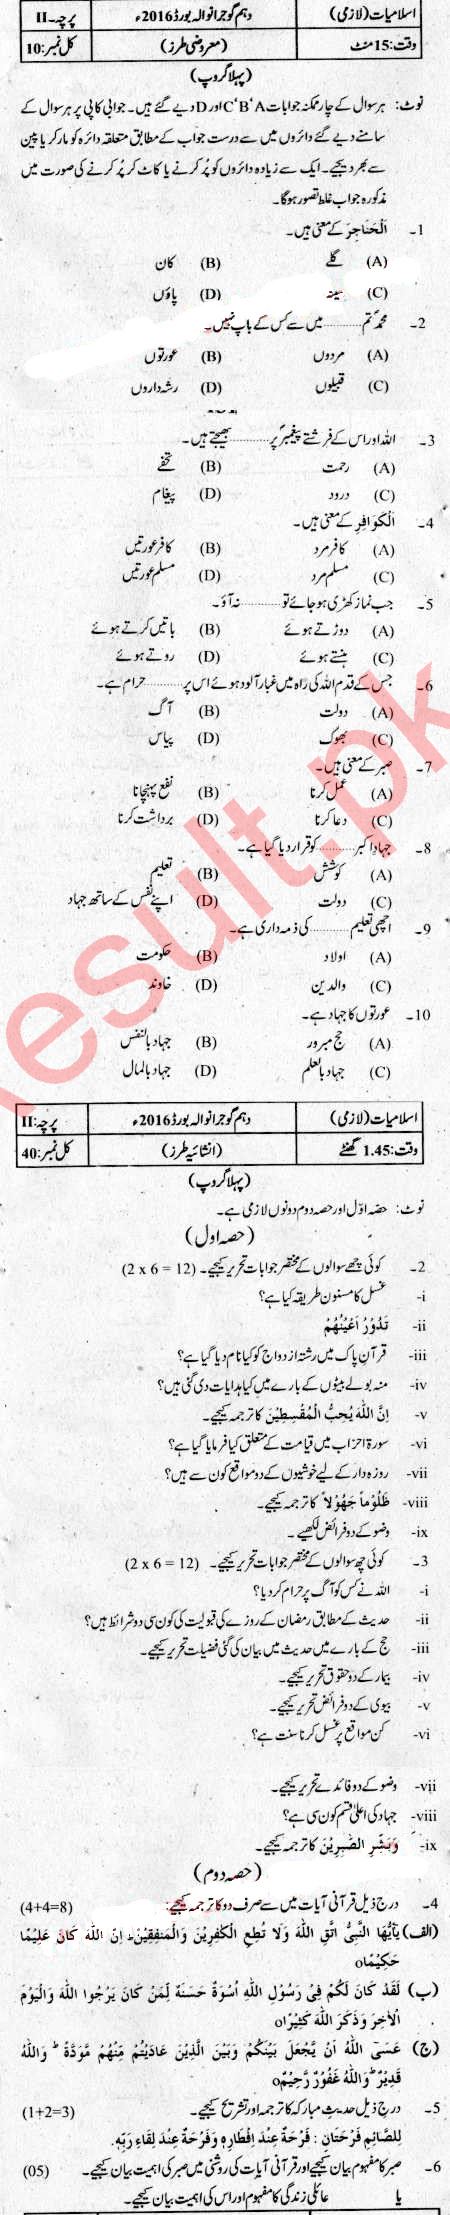 اسلامیات (لازمی) دہم گوجرانوالہ بورڈ 2016ء پرچہ-II
وقت: 15 منٹ (معروضی طرز) کل نمبر: 10
(پہلا گروپ)
نوٹ: ہر سوال کے چار ممکنہ جوابات A‘B‘C اور D دیے گئے ہیں۔ جوابی کاپی پر ہر سوال کے
سامنے دیے گئے دائروں میں سے درست جواب کے مطابق متعلقہ دائرہ کو مارکر یا پین
سے بھر دیجیے۔ ایک سے زیادہ دائروں کو پُر کرنے یا کاٹ کر پُر کرنے کی صورت میں
مذکورہ جواب غلط تصور ہو گا۔
1- اَلْحَنَاجِرَ کے معنی ہیں۔
(A) گلے (B) کان
(C) سینہ (D) پاؤں
2- محمدؐ تم .......... میں سے کس کے باپ نہیں۔
(A) مردوں (B) عورتوں
(C) قبیلوں (D) رشہ داروں
3- اللہ اور اس کے فرشتے پیغمبر پر .......... بھیجتے ہیں۔
(A) رحمت (B) تحفے
(C) درود (D) پیغام
4- اَلْكَوَافِرِ کے معنی ہیں۔
(A) کافر مرد (B) کافر عورتیں
(C) مسلم مرد (D) مسلم عورتیں
5- جب نماز کھڑی ہو جائے تو .......... نہ آؤ۔
(A) دوڑتے ہوئے (B) باتیں کرتے ہوئے
(C) ہنستے ہوئے (D) روتے ہوئے
6- جس کے قدم اللہ کی راہ میں غبار آلود ہوئے اس پر .......... حرام ہے۔
(A) دولت (B) آگ
(C) بھوک (D) پیاس
7- صبر کے معنی ہیں۔
(A) عمل کرنا (B) نفع پہنچانا
(C) دعا کرنا (D) برداشت کرنا
8- جہاد اکبر .......... کو قرار دیا گیا ہے۔
(A) کوشش (B) تعلیم
(C) دولت (D) اپنے نفس کے ساتھ جہاد
9- اچھی تعلیم .......... کی ذمہ داری ہے۔
(A) اولاد (B) حکومت
(C) والدین (D) خاوند
10- عورتوں کا جہاد ہے۔
(A) حج مبرور (B) جہاد بالنفس
(C) جہاد بالعلم (D) جہاد بالمال
اسلامیات (لازمی) دہم گوجرانوالہ بورڈ 2016ء پرچہ: II
وقت: 1.45 گھنٹے (انشائیہ طرز) کل نمبر: 40
(پہلا گروپ)
نوٹ: حصہ اوّل اور حصہ دوم دونوں لازمی ہے۔
(حصہ اول)
2- کوئی چھے سوالوں کے مختصر جوابات تحریر کیجیے۔ (2 x 6 = 12)
i- غسل کا مسنون طریقہ کیا ہے؟
ii- تَدُوْرُ اَعْيُنُهُمْ
iii- قرآن پاک میں رشتہ ازدواج کو کیا نام دیا گیا ہے؟
iv- منہ بولے بیٹوں کے بارے میں کیا ہدایات دی گئی ہیں؟
v- اِنَّ اللّٰهَ يُحِبُّ الْمُقْسِطِيْنَ کا ترجمہ کیجیے۔
vi- سورۃ احزاب میں قیامت کے متعلق کیا فرمایا گیا ہے؟
vii- روزہ دار کے لیے خوشیوں کے دو مواقع کون سے ہیں؟
viii- ظَلُوْماً جَهُوْلاً کا ترجمہ کیجیے۔
ix- وضو کے دو فرائض لکھیے۔
3- کوئی چھ سوالوں کے مختصر جوابات تحریر کیجیے۔ (2 x 6 = 12)
i- اللہ نے کس کو آگ پر حرام کر دیا؟
ii- حدیث کے مطابق رمضان کے روزے کی قبولیت کی کون سی دو شرائط ہیں؟
iii- حج کے بارے میں حدیث میں بیان کی گئی فضیلت تحریر کیجیے۔
iv- بیمار کے دو حقوق تحریر کیجیے۔
v- بیوی کے دو فرائض تحریر کیجیے۔
vi- کن مواقع پر غسل کرنا سنت ہے؟
vii- وضو کے دو فائدے تحریر کیجیے۔
viii- جہاد کی اعلیٰ قسم کون سی ہے؟
ix- وَبَشِّرِ الصّٰبِرِيْنَ کا ترجمہ کیجیے۔
(حصہ دوم)
4- درج ذیل قرآنی آیات میں سے صرف دو کا ترجمہ کیجیے: (4+4=8)
(الف) يٰٓاَيُّهَا النَّبِيُّ اتَّقِ اللّٰهَ وَلَا تُطِعِ الْكٰفِرِيْنَ وَالْمُنٰفِقِيْنَ ط اِنَّ اللّٰهَ كَانَ عَلِيْمًا
حَكِيْمًا o
(ب) لَقَدْ كَانَ لَكُمْ فِيْ رَسُوْلِ اللّٰهِ اُسْوَةٌ حَسَنَةٌ لِّمَنْ كَانَ يَرْجُوا اللّٰهَ وَالْيَوْمَ
الْاٰخِرَ وَذَكَرَ اللّٰهَ كَثِيْرًا o
(ج) عَسَى اللّٰهُ اَنْ يَّجْعَلَ بَيْنَكُمْ وَبَيْنَ الَّذِيْنَ عَادَيْتُمْ مِّنْهُمْ مَّوَدَّةً ط وَاللّٰهُ
قَدِيْرٌ ط وَاللّٰهُ غَفُوْرٌ رَّحِيْمٌ o
5- درج ذیل حدیث مبارکہ کا ترجمہ اور تشریح کیجیے۔ (1+2=3)
لِلصَّائِمِ فَرْحَتَانِ : فَرْحَةٌ عِنْدَ اِفْطَارِهٖ وَفَرْحَةٌ عِنْدَ لِقَاءِ رَبِّهٖ.
6- صبر کا مفہوم بیان کیجیے اور قرآنی آیات کی روشنی میں صبر کی اہمیت بیان کیجیے۔ (05)
یا عائلی زندگی کا مفہوم اور اس کی اہمیت بیان کیجیے۔
esult.pk